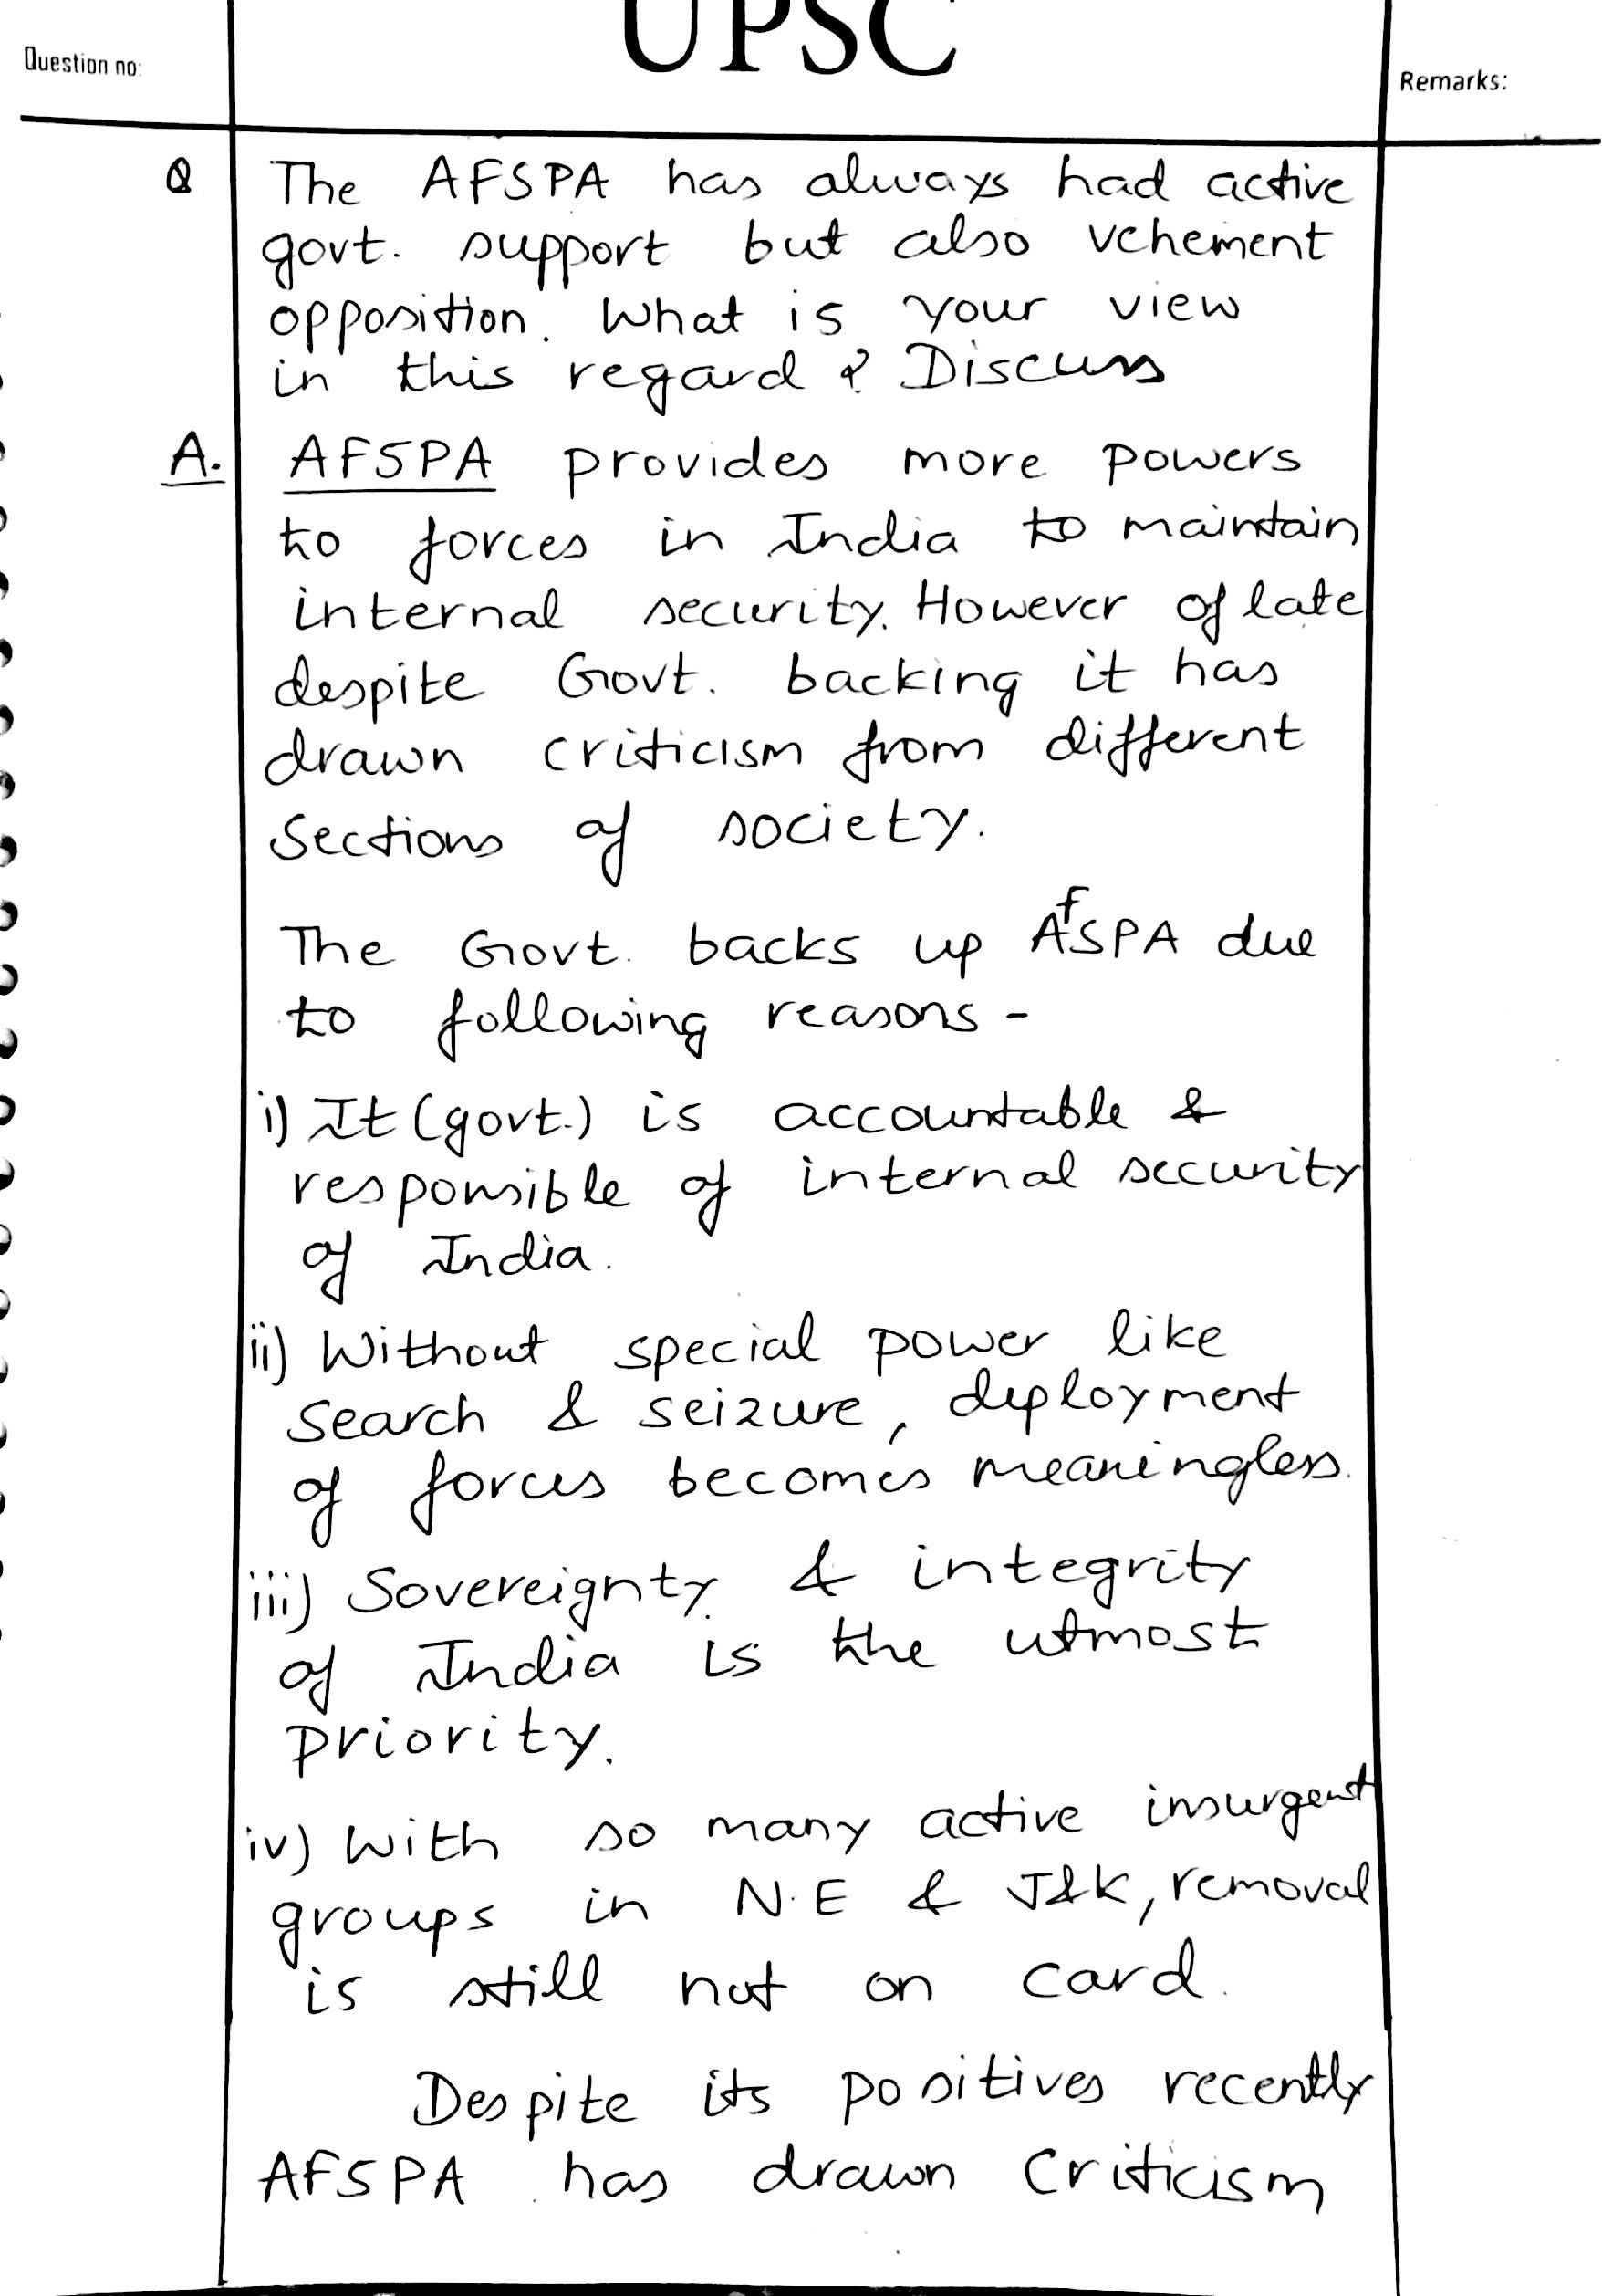 UPSC
Question no:
Remarks:
Q The AFSPA has always had active
govt. support but also vehement
opposition. What is your view
in this regard? Discuss
A. AFSPA provides more powers
to forces in India to maintain
internal security. However of late
despite Govt. backing it has
drawn criticism from different
sections of society.
The Govt. backs up AFSPA due
to following reasons -
i) It (govt.) is accountable &
responsible of internal security
of India.
ii) Without special power like
search & seizure, deployment
of forces becomes meaningless.
iii) Sovereignty & integrity
of India is the utmost
priority.
iv) With so many active insurgent
groups in N.E & J&K, removal
is still not on card.
Despite its positives recently
AFSPA has drawn criticism